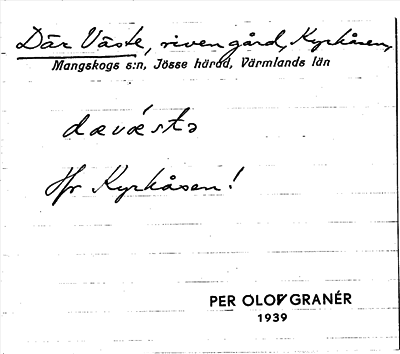 Där Väste, riven gård, Kyrkåsen,
Mangskogs s:n, Jösse härad, Värmlands län
dævǽstə
Jfr Kyrkåsen!
PER OLOF GRANÉR
1939